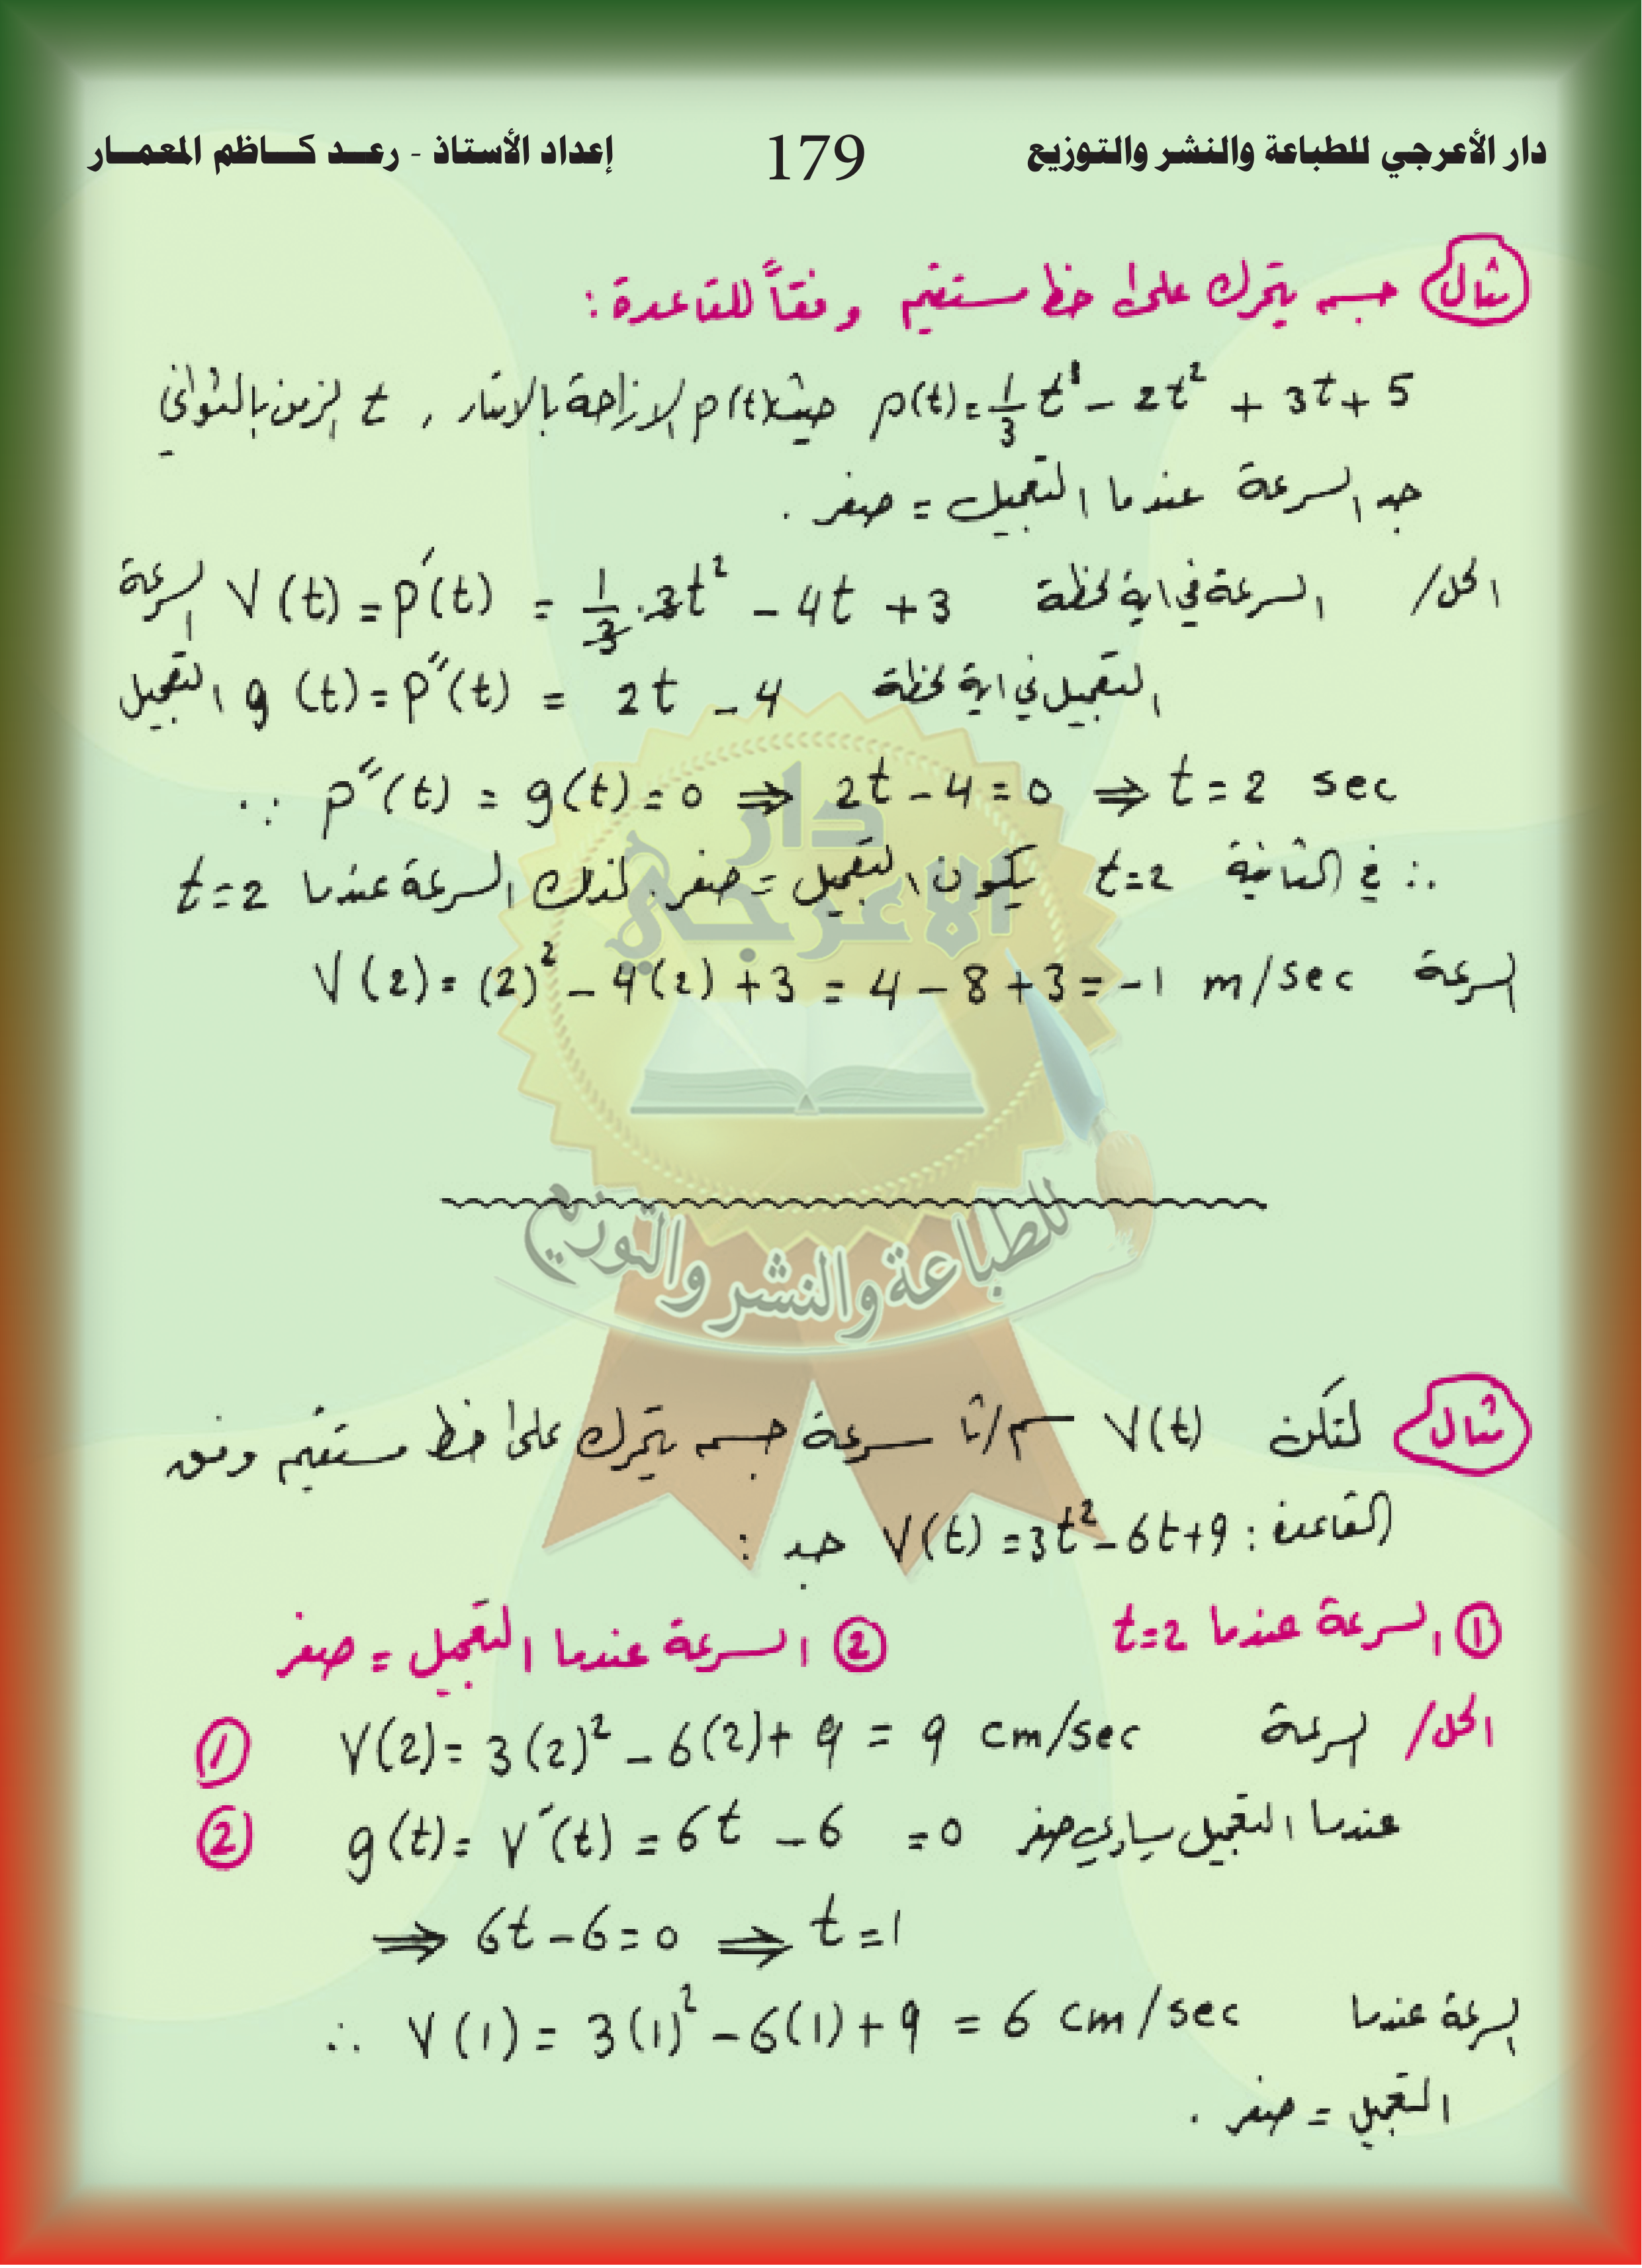 دار الأعرجي للطباعة والنشر والتوزيع 179 إعداد الأستاذ - رعد كاظم المعمار
مثال جسم يتحرك على خط مستقيم وفقاً للقاعدة :
p(t)=1/3 t³ - 2t² + 3t + 5 حيث p(t) الإزاحة بالامتار , t الزمن بالثواني
جد السرعة عندما التعجيل = صفر .
الحل / السرعة في اية لحظة V(t) = p′(t) = 1/3 . 3t² - 4t + 3 السرعة
التعجيل في اية لحظة g(t) = p″(t) = 2t - 4 التعجيل
∵ p″(t) = g(t) = 0 ⇒ 2t - 4 = 0 ⇒ t = 2 sec
∴ في الثانية t=2 يكون التعجيل = صفر . لذلك السرعة عندما t=2
السرعة V(2) = (2)² - 4(2) + 3 = 4 - 8 + 3 = -1 m/sec
دار
الاعرجي
للطباعة والنشر والتوزيع
مثال لتكن V(t) سم/ثا سرعة جسم يتحرك على خط مستقيم وفق
القاعدة : V(t) = 3t² - 6t + 9 جد :
① السرعة عندما t=2 ② السرعة عندما التعجيل = صفر
الحل / السرعة V(2) = 3(2)² - 6(2) + 9 = 9 cm/sec ①
عندما التعجيل يساوي صفر g(t) = V′(t) = 6t - 6 = 0 ②
⇒ 6t - 6 = 0 ⇒ t = 1
السرعة عندما ∴ V(1) = 3(1)² - 6(1) + 9 = 6 cm/sec
التعجيل = صفر .